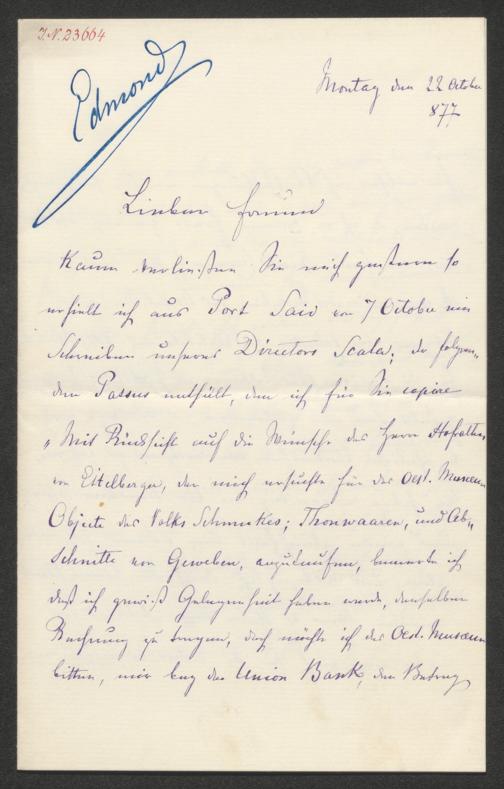 J.N. 23664
Edmond
Montag den 22 October
877
Lieber Freund
Kaum verließen Sie mich gestern so
erhielt ich aus Port Said von 7 October ein
Schreiben unseres Directors Scala, der folgen„
den Passus enthält, den ich für Sie copire
„Mit Rücksicht auf die Wünsche des Herrn Hofrathes
von Eitelberger, der mich ersuchte für das Oest. Museum
Objecte des Volks Schmuckes; Thonwaaren, und Ab„
schnitte von Geweben, anzukaufen, bemerke ich
daß ich gewiß Gelegenheit haben werde, demselben
Rechnung zu tragen, doch möchte ich das Oest. Museum
bitten, mir bey der Union Bank, den Betrag